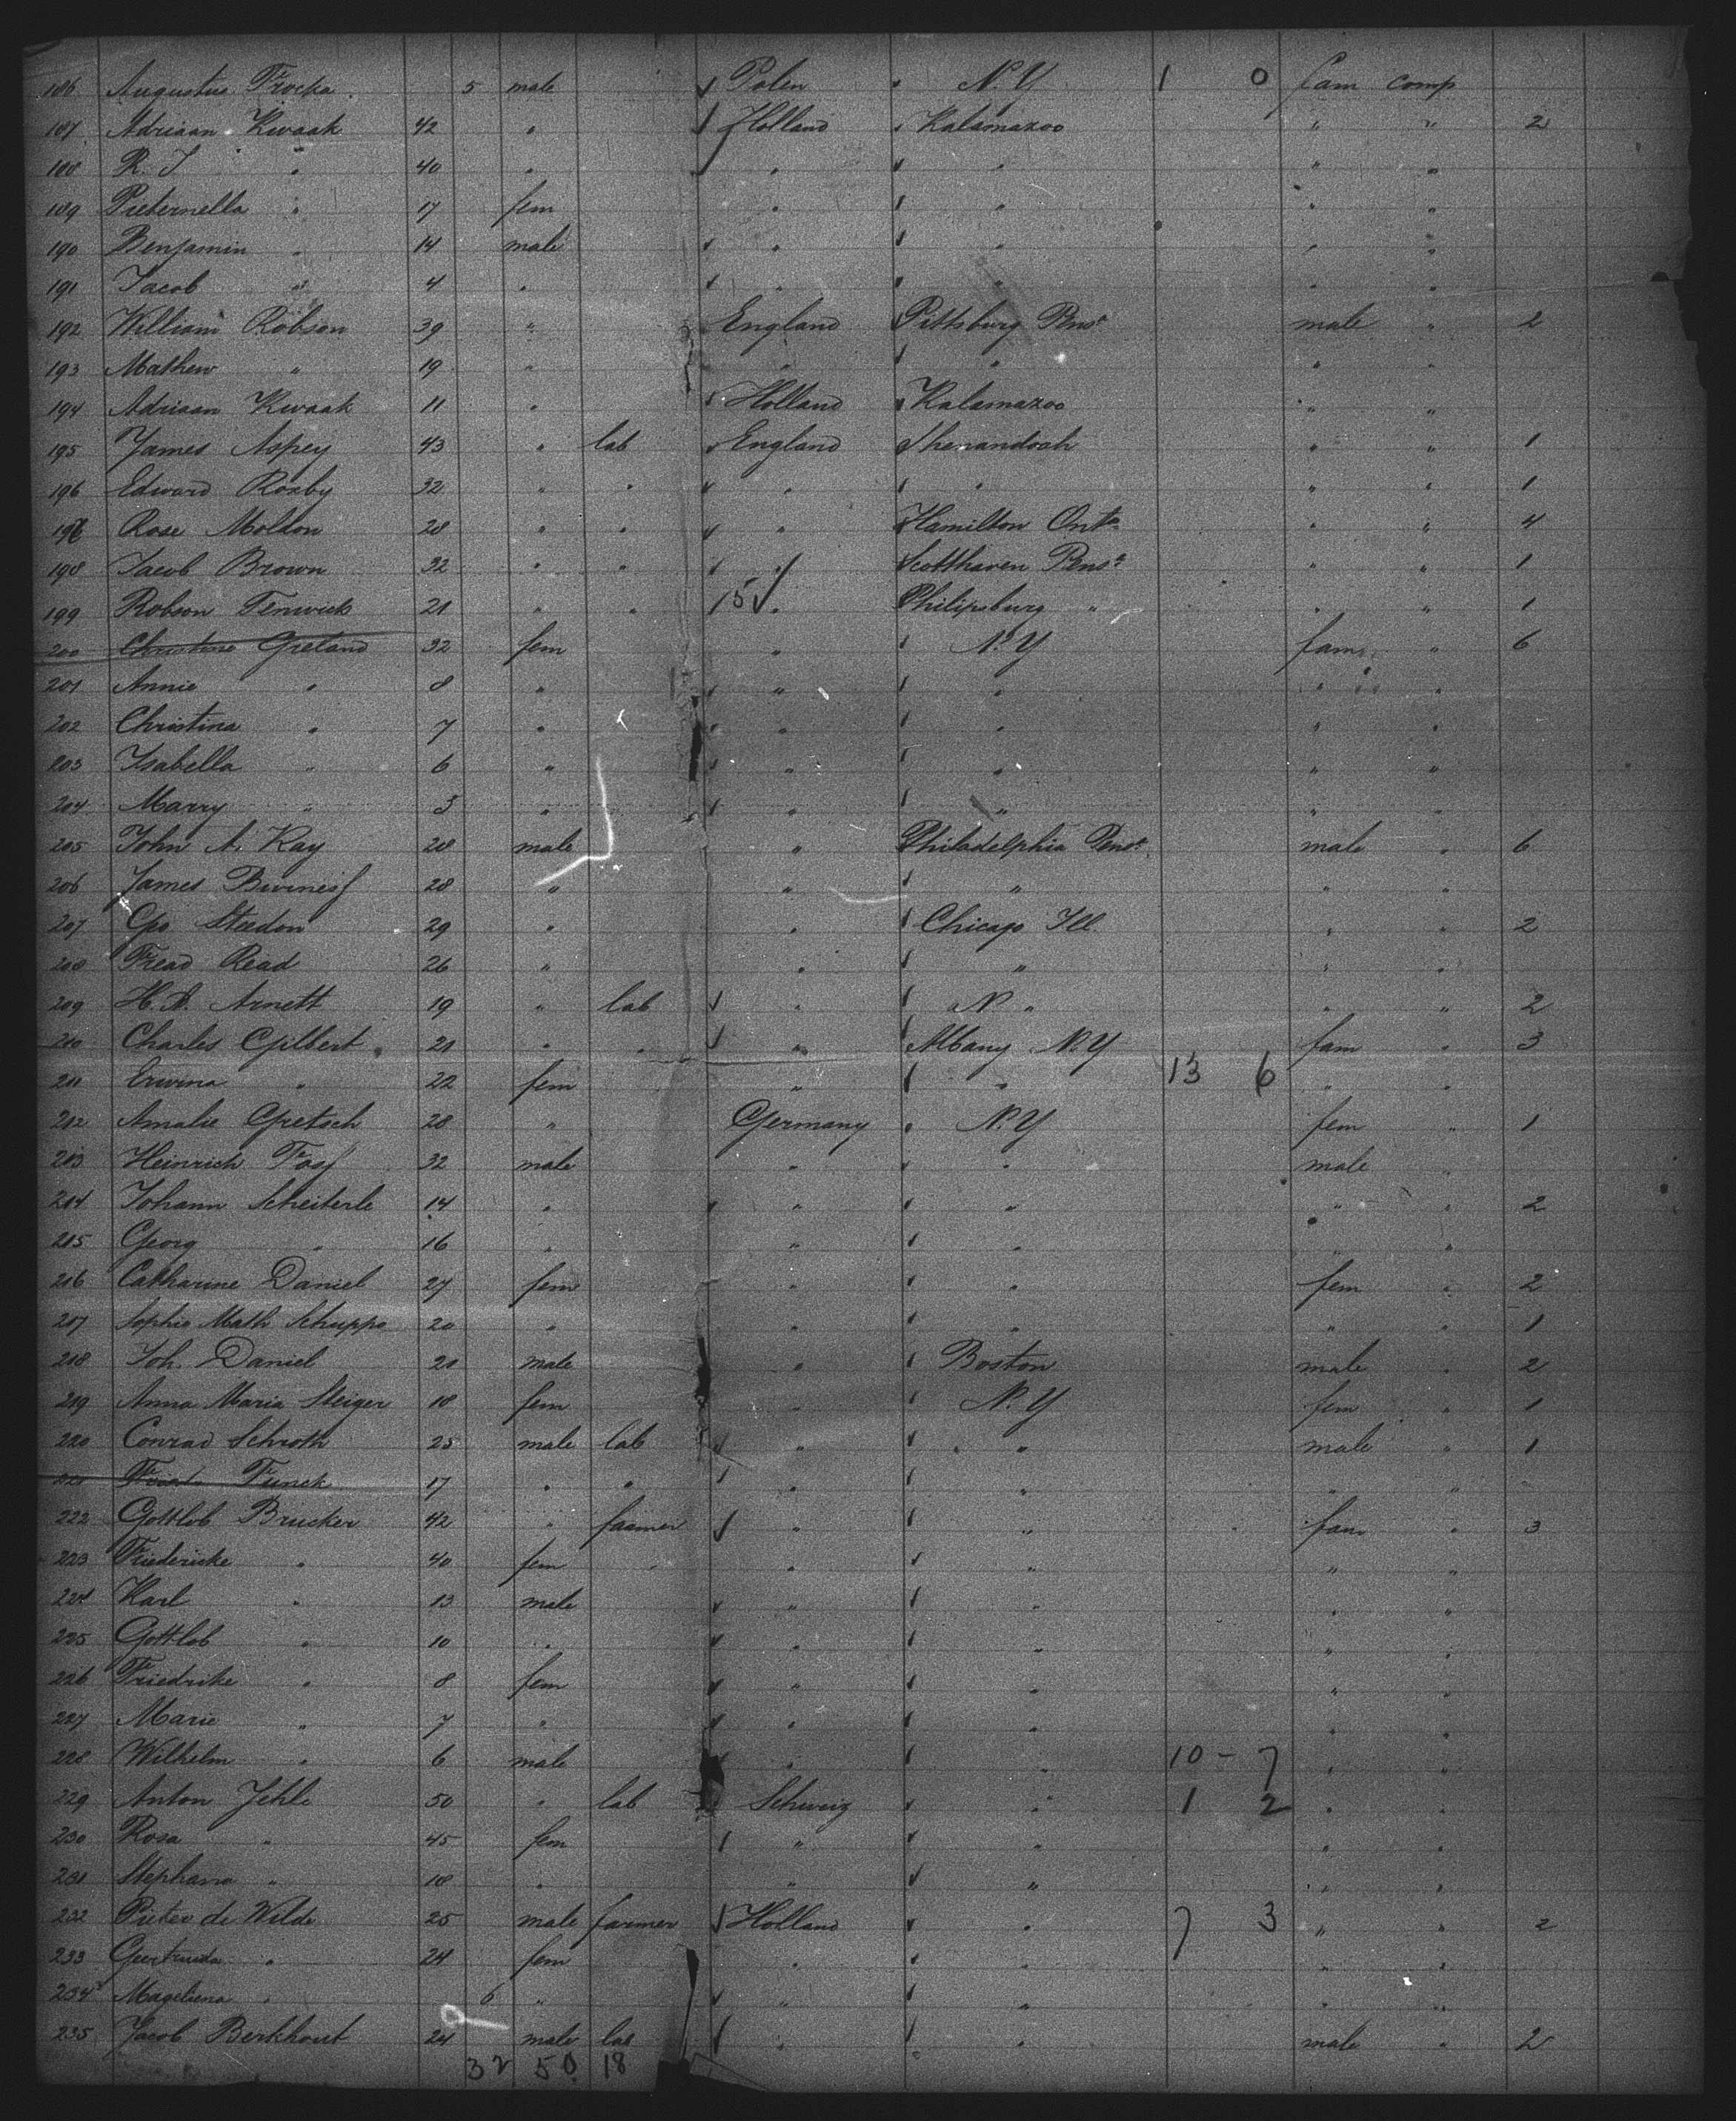 186 Augustus Trocka 5 male Polen N.Y 1 0 fam comp
187 Adriaan Kwaak 42 " Holland Kalamazoo " " 2
188 R. J " 40 " " " " "
189 Pieternella " 17 fem " " " "
190 Benjamin " 14 male " " " "
191 Jacob " 4 " " " " "
192 William Robson 39 " England Pittsburg Pens. male " 2
193 Mathew " 19 " " " " "
194 Adriaan Kwaak 11 " Holland Kalamazoo " "
195 James Aspey 43 " lab England Shenandoah " " 1
196 Edward Roxby 32 " " " " " " 1
197 Rose Moldon 28 " " " Hamilton Ont. " " 4
198 Jacob Brown 32 " " " Scotthaven Pens. " " 1
199 Robson Fenwick 21 " " 15 " Philipsburg " " " 1
200 Christine Greland 32 fem " N.Y fam " 6
201 Annie " 8 " " " " "
202 Christina " 7 " " " " "
203 Isabella " 6 " " " " "
204 Marry " 5 " " " " "
205 John A. Kay 28 male " Philadelphia Pens. male " 6
206 James 28 " " " " "
207 Geo Steedon 29 " " Chicago Ill " " 2
208 Fread Read 26 " " " " "
209 H. B. Arnett 19 " lab " N. " " " 2
210 Charles Gilbert 21 " " " Albany N.Y fam " 3
211 Erwina " 22 fem " " 13 6 " "
212 Amalie Gretsch 28 " Germany N.Y fem " 1
213 Heinrich Foss 32 male " " male "
214 Johann Scheiterle 14 " " " " " 2
215 Georg " 16 " " " " "
216 Catharine Daniel 27 fem " " fem " 2
217 Sophie Math Schuppe 20 " " " " " 1
218 Joh. Daniel 21 male " Boston male " 2
219 Anna Maria Steiger 18 fem " N.Y fem " 1
220 Conrad Schroth 25 male lab " " male " 1
221 Funck 17 " " " " " "
222 Gottlob Brucker 42 " farmer " " fam " 3
223 Friedericke " 40 fem " " " "
224 Karl " 13 male " " " "
225 Gottlob " 10 " " " " "
226 Friedrike " 8 fem " " " "
227 Marie " 7 " " " " "
228 Wilhelm " 6 male " " 10 - 7 " "
229 Anton Jehle 50 " lab Schweiz " 1 2 " "
230 Rosa " 45 fem " " " "
231 Stephana " 18 " " " " "
232 Pieter de Wilde 25 male farmer Holland " 7 3 " " 2
233 Geertruida " 24 fem " " " "
234 Mageliena " 6 " " " " "
235 Jacob Berkhout 24 male lab " " male " 2
32 50 18